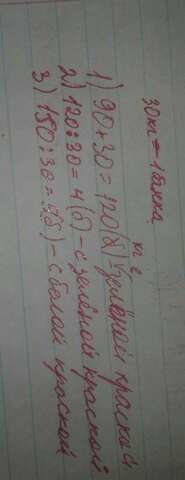 30 кг = 1 банка
1) 90+30=120(кг) зелёной краской
2) 120:30=4(б) - с зелёной краской
3) 150:30=5(б) - с белой краской